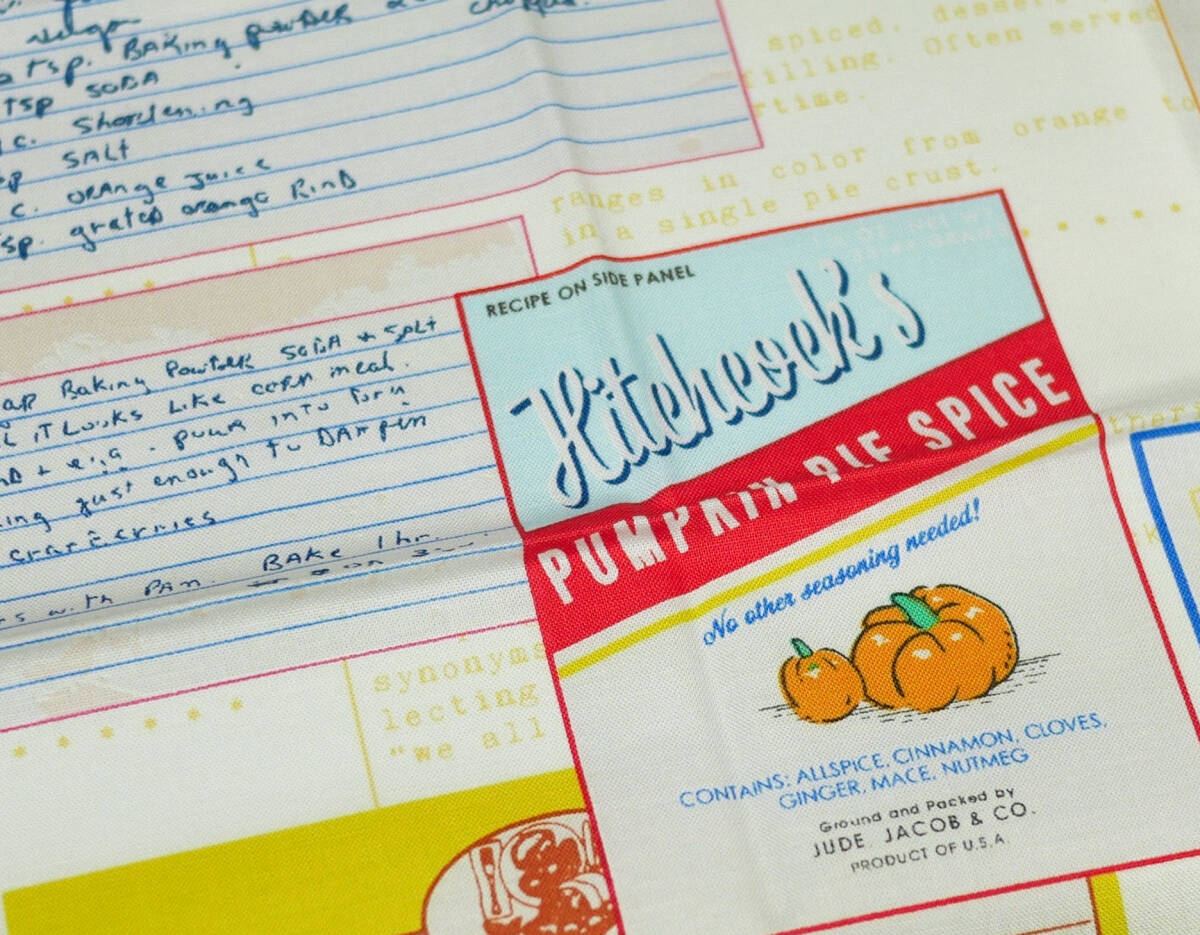 tsp. BAKING POWDER
TSP SODA
c. Shortening
SALT
c. ORANGE JUICE
sp. grated orange RIND
spiced, dessert
filling. Often served
rtime.
ranges in color from orange to
in a single pie crust.
* * * *
RECIPE ON SIDE PANEL
Hitchcock's
PUMPKIN PIE SPICE
No other seasoning needed!
CONTAINS: ALLSPICE, CINNAMON, CLOVES,
GINGER, MACE, NUTMEG
Ground and Packed by
JUDE, JACOB & CO.
PRODUCT OF U.S.A.
BAKING POWDER SODA + SALT
IT LOOKS LIKE CORN MEAL.
+ egg. pour into
ing just enough to DAMPEN
cranberries
with PAN. BAKE 1 hr.
* * * * * *
synonyms
lecting
"we all